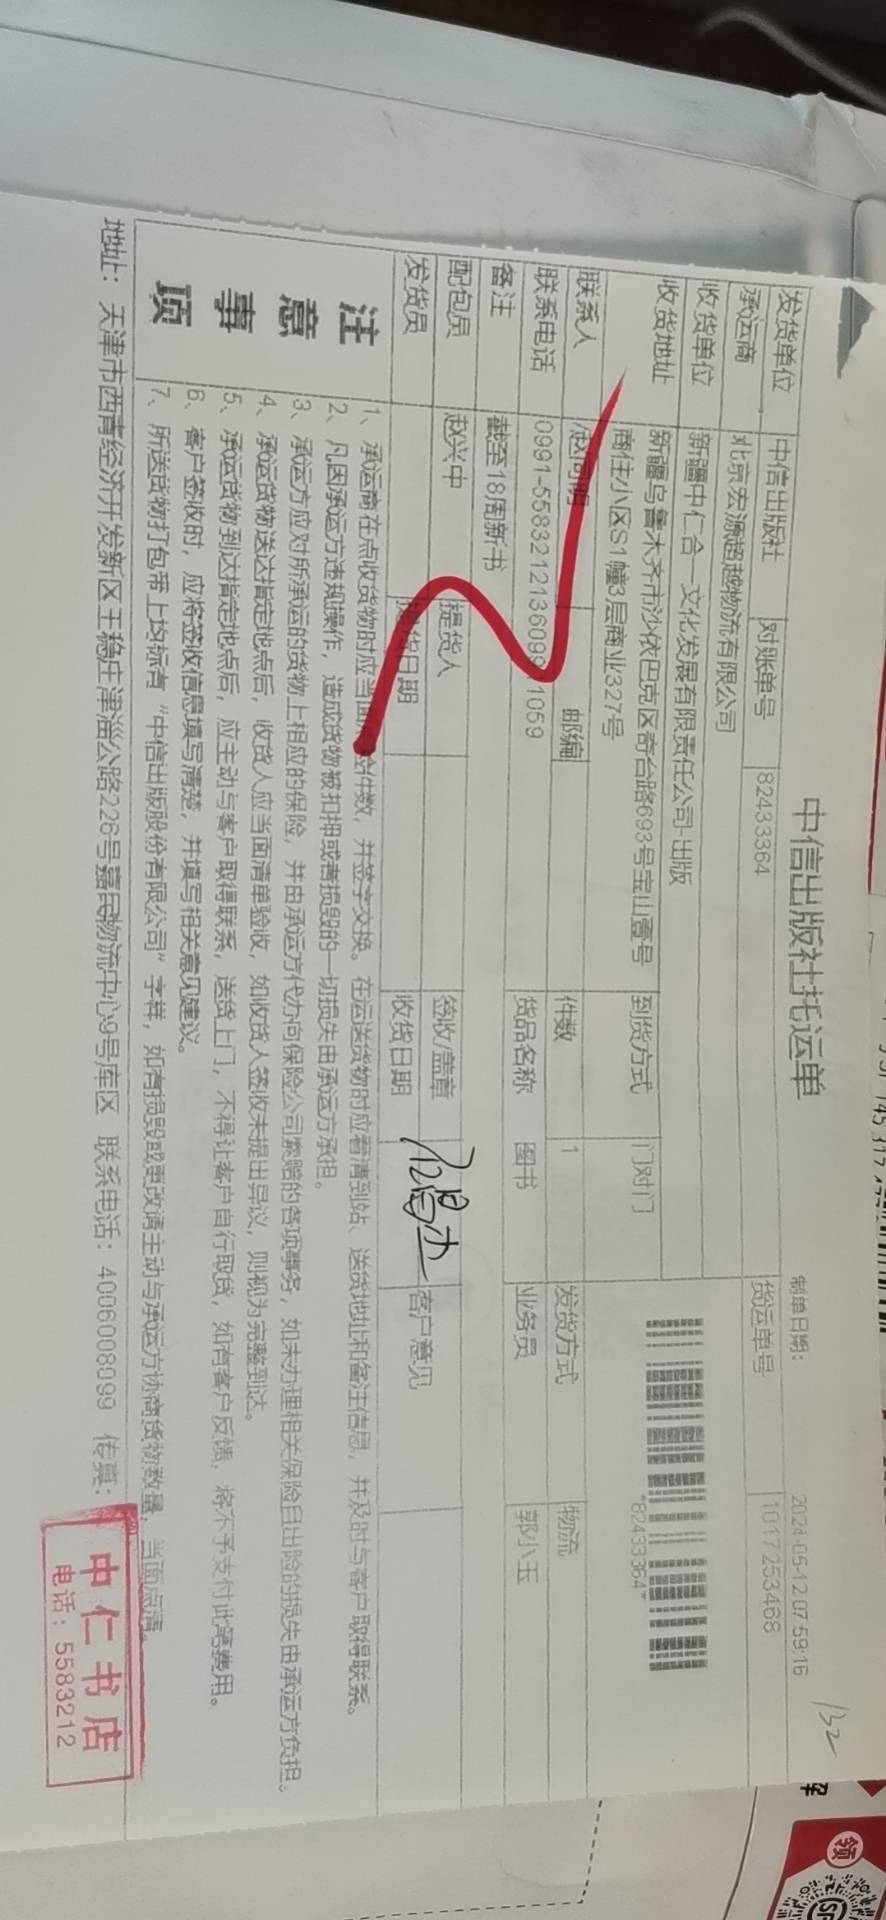 中信出版社托运单
制单日期： 2024-05-12 07:59:16
132
发货单位 中信出版社 对账单号 82433364 货运单号 1017253468
承运商 北京宏源超越物流有限公司
收货单位 新疆中仁合一文化发展有限责任公司-出版
收货地址 新疆乌鲁木齐市沙依巴克区奇台路693号宝山壹号 到货方式 门对门
商住小区S1幢3层商业327号
*82433364*
联系人 邮编 件数 1 发货方式 物流
联系电话 0991-5583212136099 1059 货品名称 图书 业务员 郭小玉
备注 截至18周新书
配包员 赵兴中 提货人 签收/盖章 客户意见
发货员 提货日期 收货日期
注意事项
1、承运商在点收货物时应当面 件数，并签字交换。在运送货物时应看清到站、送货地址和备注信息，并及时与客户取得联系。
2、凡因承运方违规操作，造成货物被扣押或者损毁的一切损失由承运方承担。
3、承运方应对所承运的货物上相应的保险，并由承运方代办向保险公司索赔的各项事务，如未办理相关保险且出险的损失由承运方负担。
4、承运货物送达指定地点后，收货人应当面清单验收，如收货人签收未提出异议，则视为完整到达。
5、承运货物到达指定地点后，应主动与客户取得联系，送货上门，不得让客户自行取货，如有客户反馈，将不予支付此笔费用。
6、客户签收时，应将签收信息填写清楚，并填写相关意见建议。
7、所送货物打包带上均标有“中信出版股份有限公司”字样，如有损毁或更改请主动与承运方协商货物数量，当面点清。
地址：天津市西青经济开发新区王稳庄津淄公路226号嘉民物流中心9号库区 联系电话：4006008099 传真：
中仁书店
电话：5583212
领
SF